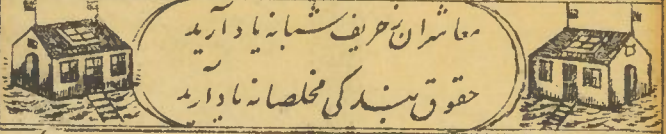 معاشران ز حریف شبانه یاد آرید
حقوق بندگی مخلصانه یاد آرید